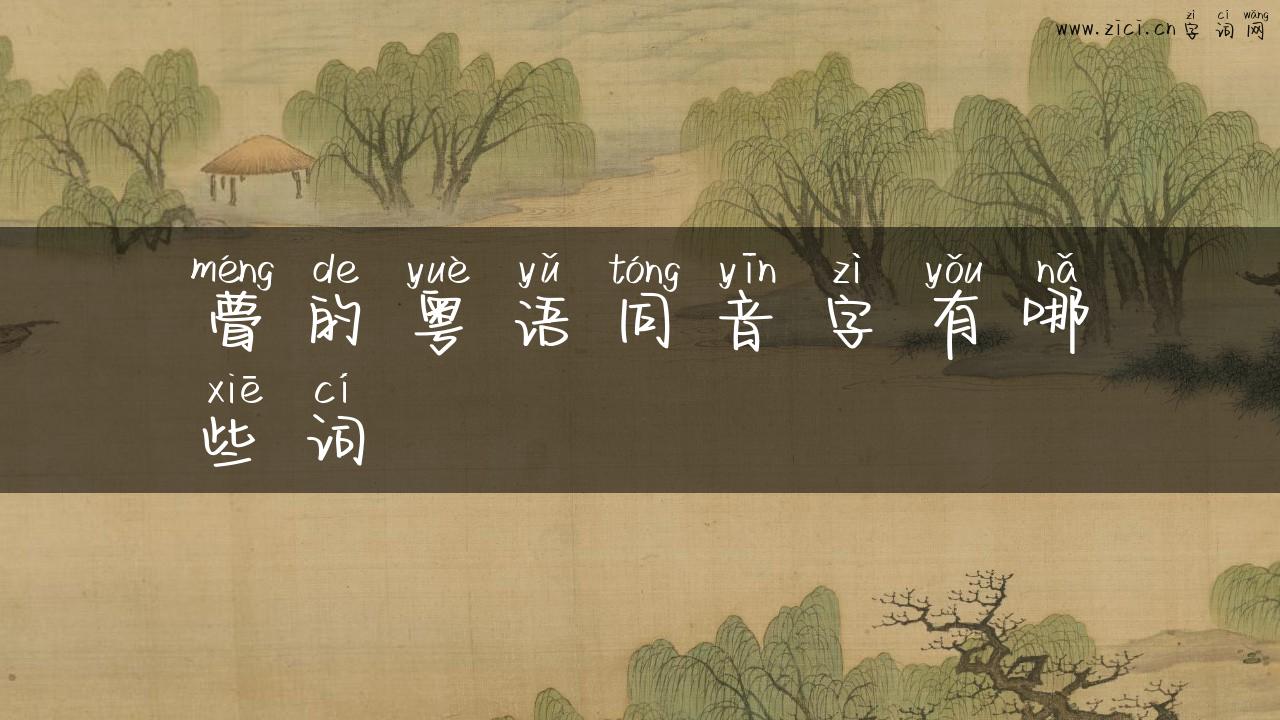 zì cí wǎng
www.zici.cn 字词网
méng de yuè yǔ tóng yīn zì yǒu nǎ
瞢的粤语同音字有哪
xiē cí
些词